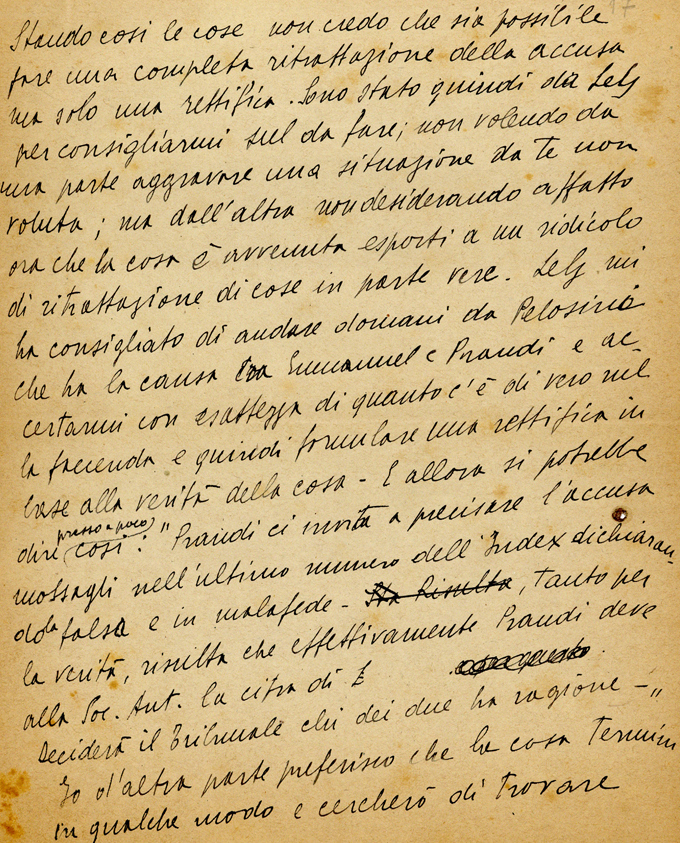 17
Stando così le cose non credo che sia possibile
fare una completa ritrattazione della accusa
ma solo una rettifica. Sono stato quindi da Lelj
per consigliarmi sul da fare; non volendo da
una parte aggravare una situazione da te non
voluta; ma dall'altra non desiderando affatto
ora che la cosa è avvenuta esporti a un ridicolo
di ritrattazione di cose in parte vere. Lelj mi
ha consigliato di andare domani da Pelosini
che ha la causa tra Emmanuel e Prandi e ac-
certarmi con esattezza di quanto c'è di vero nel
la faccenda e quindi formulare una rettifica in
base alla verità della cosa - E allora si potrebbe
dire (presso a poco) così: "Prandi ci invita a precisare l'accusa
mossagli nell'ultimo numero dell'Index dichiaran-
dola falsa e in malafede - Sta Risulta, tanto per
la verità, risulta che effettivamente Prandi deve
alla Soc. Aut. la cifra di £
Deciderà il Tribunale chi dei due ha ragione -"
Io d'altra parte preferisco che la cosa termini
in qualche modo e cercherò di trovare